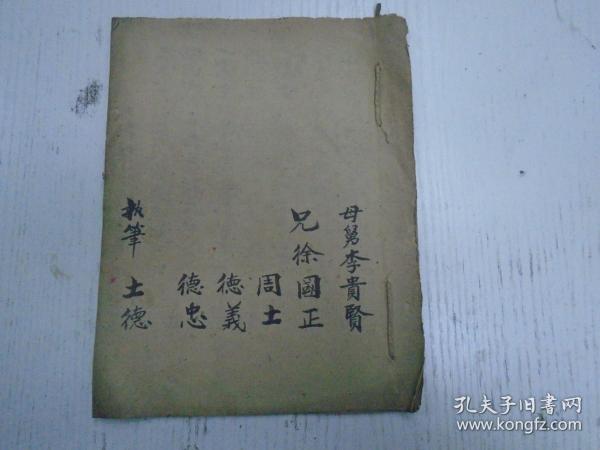 母舅李貴賢
兄徐國正
周士
德義
德忠
執筆 士德
孔夫子旧书网
www.kongfz.com